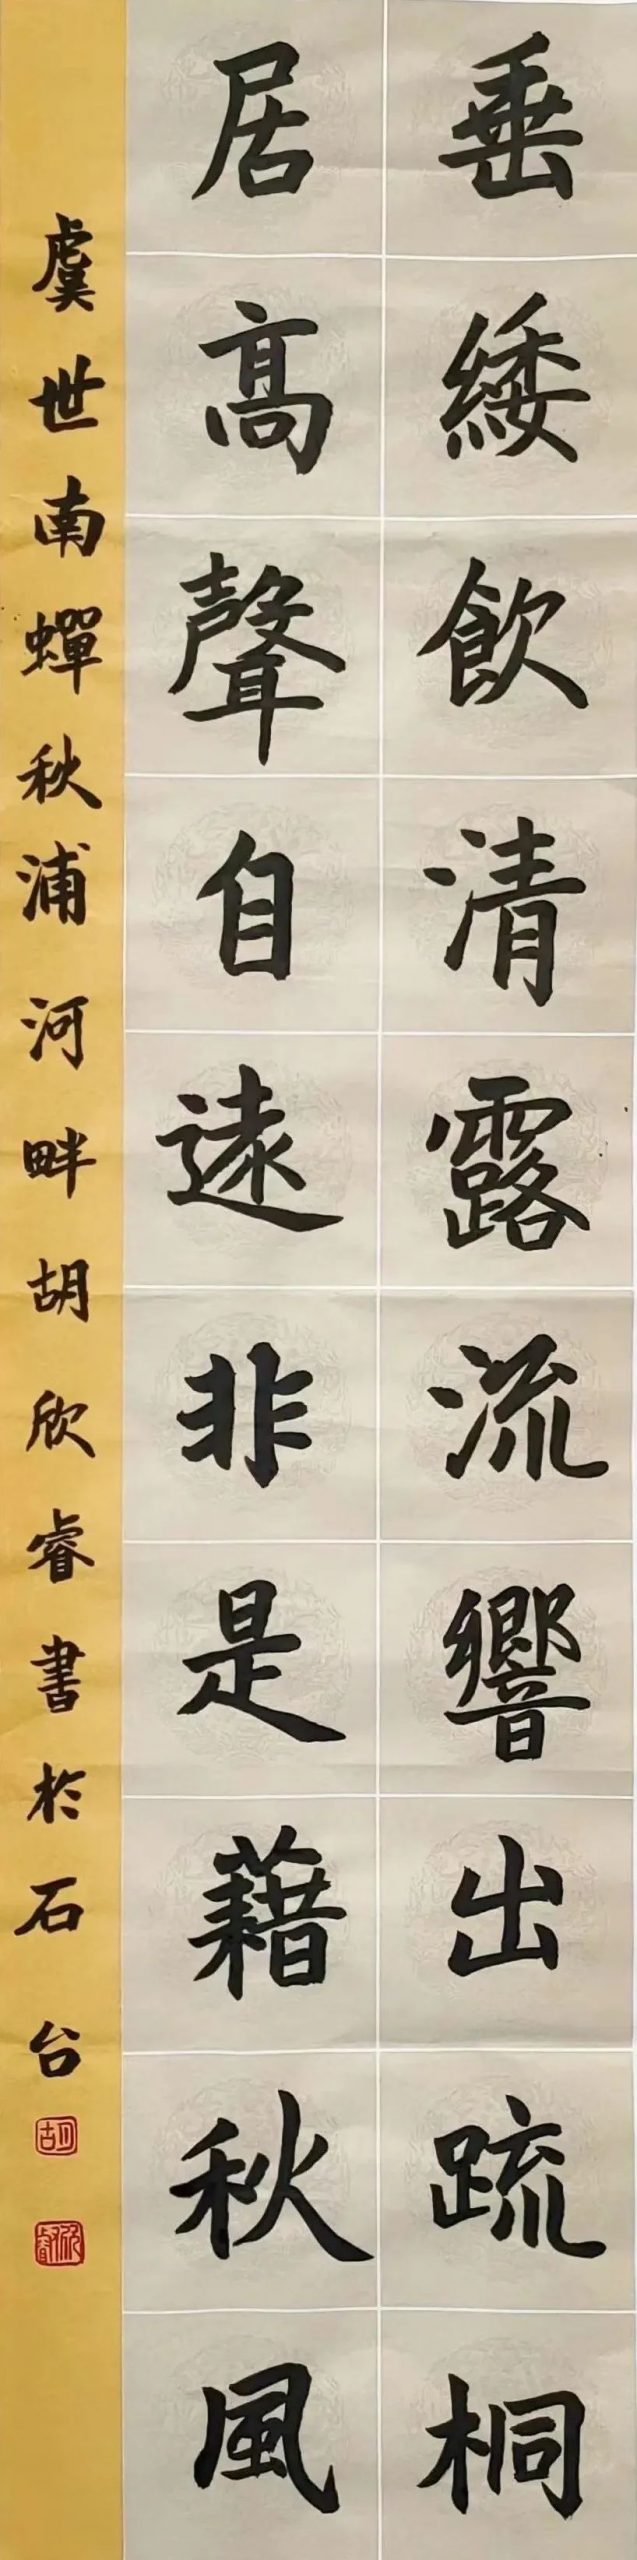 垂緌飲清露流響出疏桐
居高聲自遠非是藉秋風
虞世南蟬秋浦河畔胡欣睿書於石台
胡
欣睿